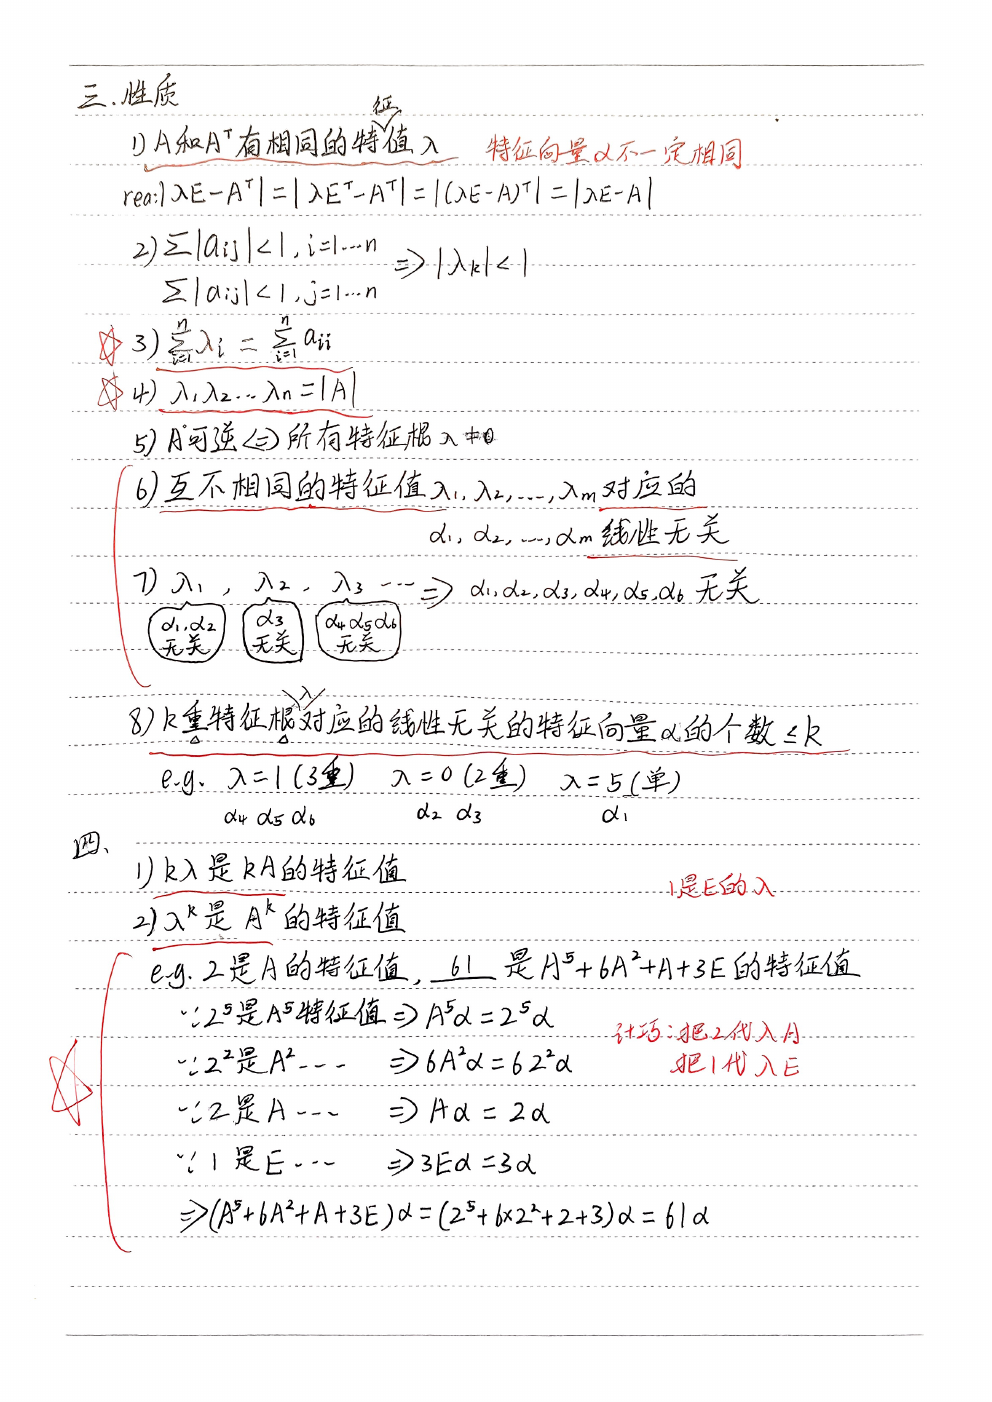 三.性质
1) A和Aᵀ有相同的特征值λ 特征向量α不一定相同
rea:|λE-Aᵀ|=|λEᵀ-Aᵀ|=|(λE-A)ᵀ|=|λE-A|
2) Σ|aij|<1,i=1…n
⇒|λk|<1
Σ|aij|<1,j=1…n
☆ 3) Σⁿᵢ₌₁λi = Σⁿᵢ₌₁aii
☆ 4) λ₁λ₂…λn=|A|
5) A可逆⇔所有特征根λ≠0
6) 互不相同的特征值λ₁,λ₂,…,λm对应的
α₁,α₂,…,αm线性无关
7) λ₁, λ₂, λ₃ … ⇒ α₁,α₂,α₃,α₄,α₅,α₆无关
α₁,α₂ α₃ α₄α₅α₆
无关 无关 无关
8) k重特征根λ对应的线性无关的特征向量α的个数≤k
e.g. λ=1(3重) λ=0(2重) λ=5(单)
α₄ α₅ α₆ α₂ α₃ α₁
四、
1) kλ是kA的特征值 1是E的λ
2) λᵏ是Aᵏ的特征值
☆ e.g. 2是A的特征值, 61 是A⁵+6A²+A+3E的特征值
∵2⁵是A⁵特征值⇒A⁵α=2⁵α 计巧:把2代入A
∵2²是A²… ⇒6A²α=62²α 把1代入E
∵2是A… ⇒Aα=2α
∵1是E… ⇒3Eα=3α
⇒(A⁵+6A²+A+3E)α=(2⁵+6×2²+2+3)α=61α